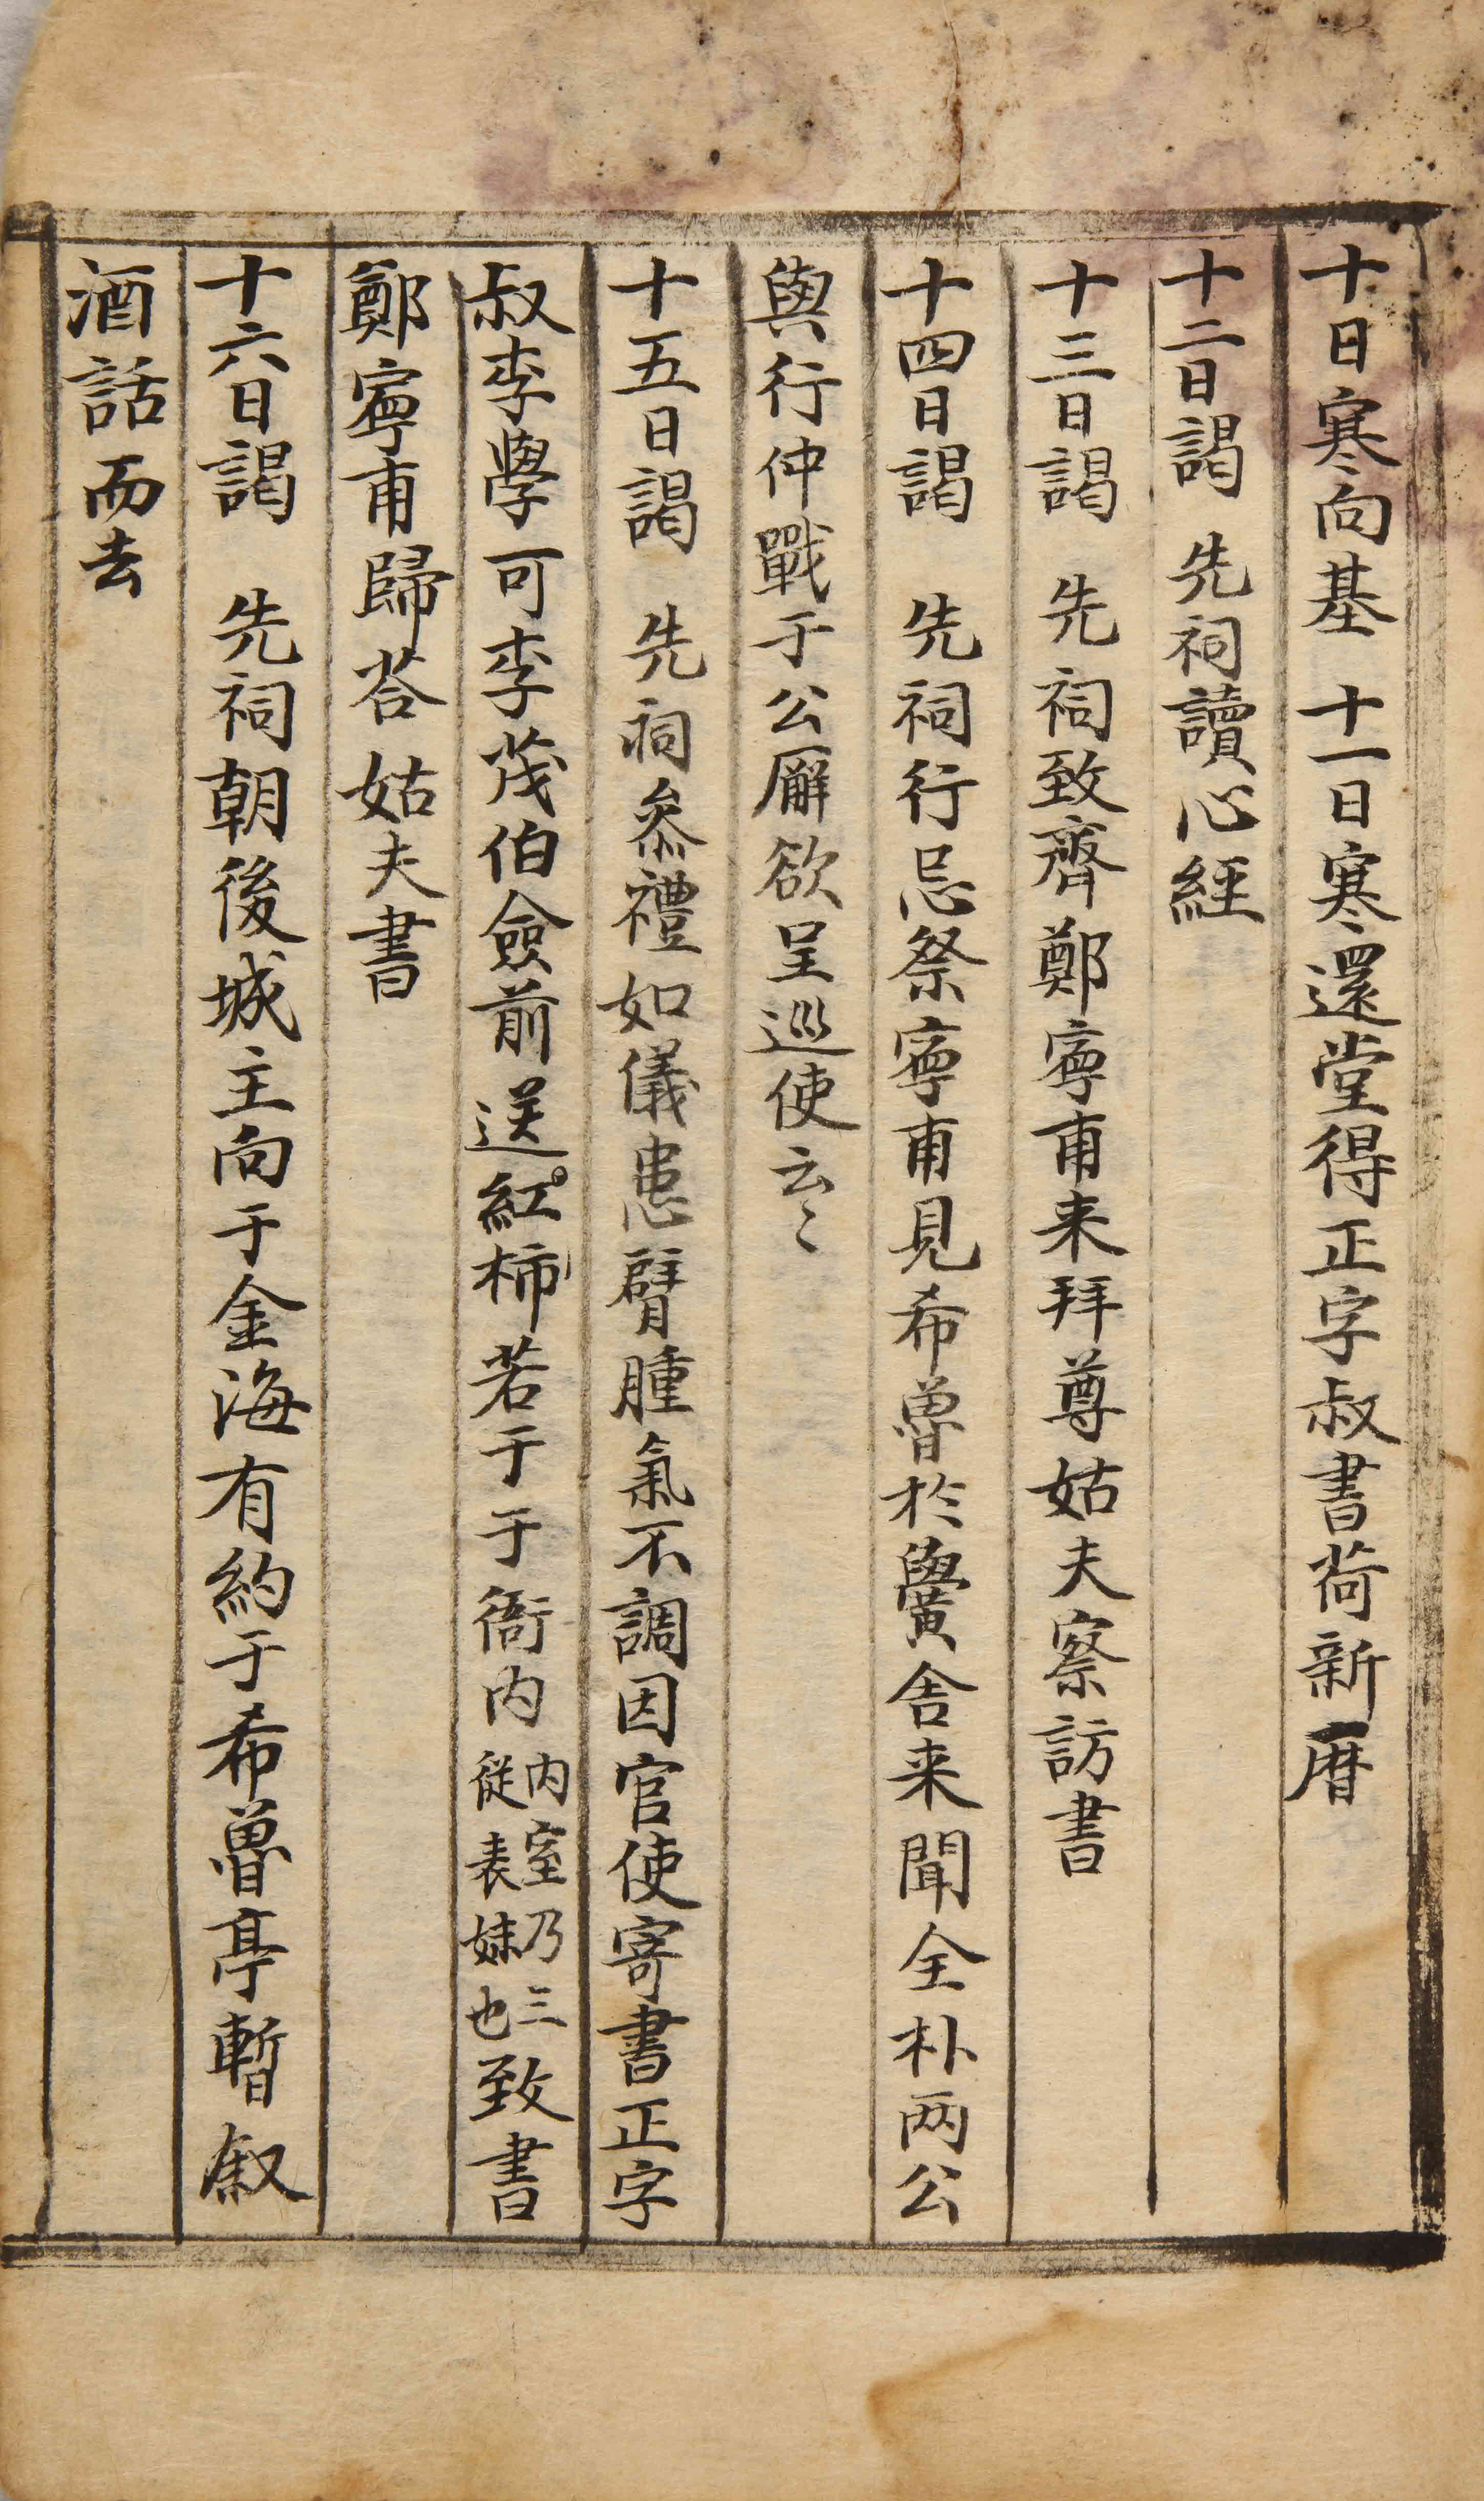 十日寒向基 十一日寒還堂得正字叔書荷新曆
十二日謁 先祠讀心經
十三日謁 先祠致齊鄭寧甫来拜尊姑夫察訪書
十四日謁 先祠行忌祭寧甫見希魯於黌舍来聞全朴两公
與行仲戰于公廨欲呈巡使云〻
十五日謁 先祠叅禮如儀患臂腫氣不調因官使寄書正字
叔李學可李茂伯僉前送紅柿若于于衙内内室乃三從表妹也致書
鄭寧甫歸答姑夫書
十六日謁 先祠朝後城主向于金海有約于希魯亭暫叙
酒話而去